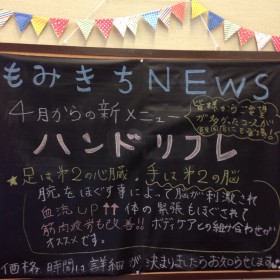 もみきちNEWS
4月からの新メニュー
皆様からご要望
が多かったコースが
ハンドリフレ
★足は第2の心臓、手は第2の脳
腕をほぐす事によって脳が刺激され
血流UP↑↑体の緊張もほぐされて
筋肉疲労も改善!!ボディケアとの組み合わせが
オススメです。
価格、時間は詳細が決まりましたらお知らせします